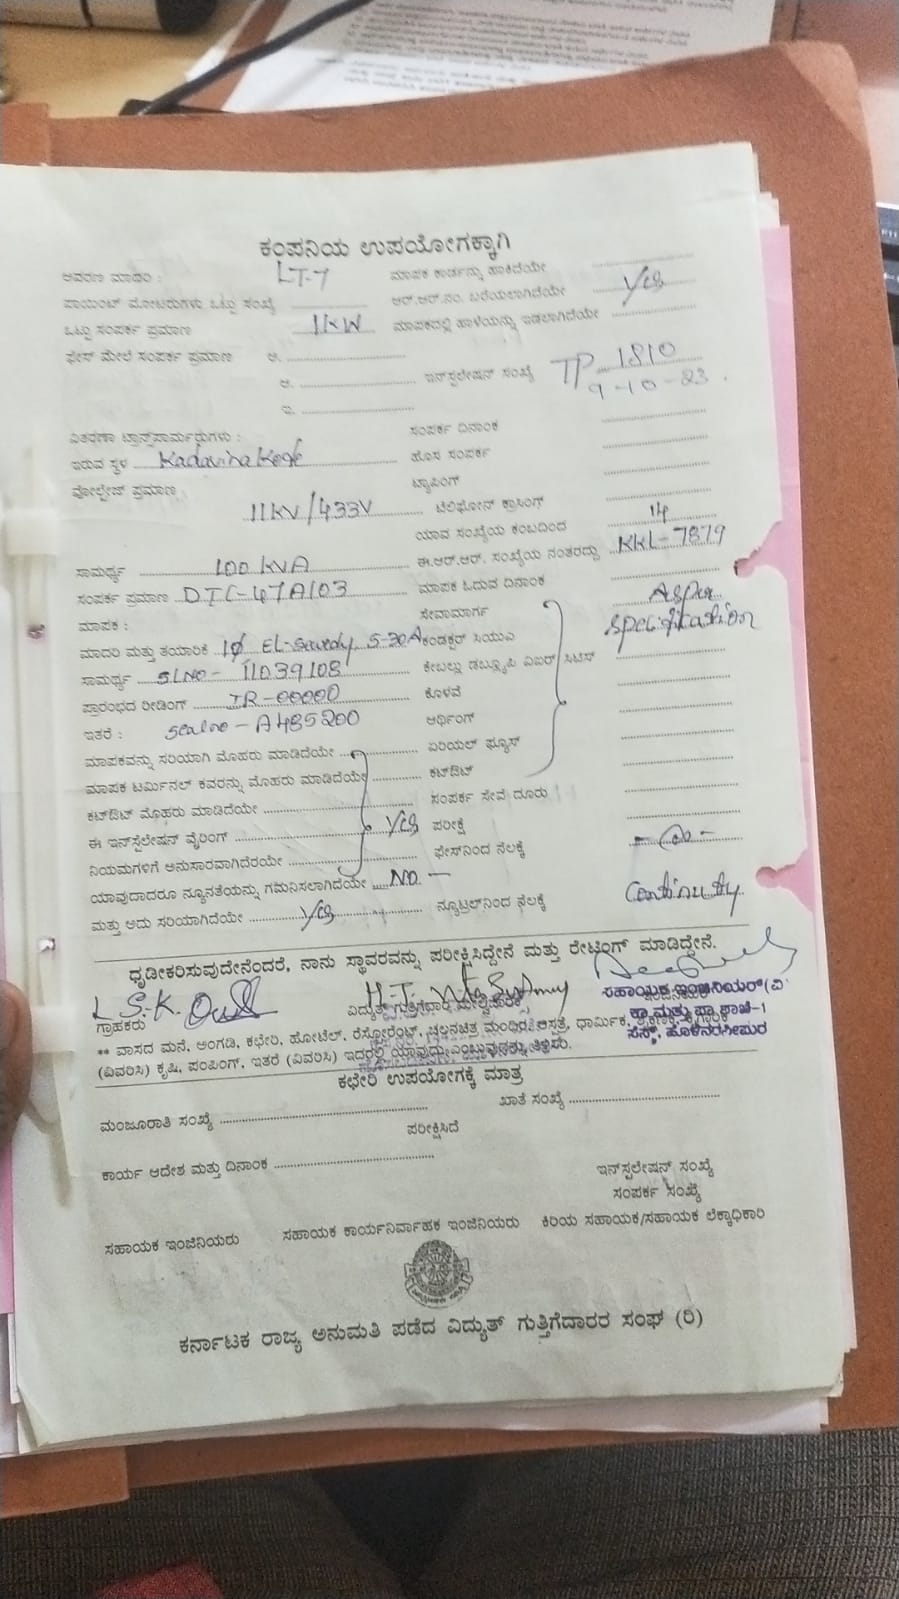 ಕಂಪನಿಯ ಉಪಯೋಗಕ್ಕಾಗಿ
ಆವರಣ ಮಾದರಿ : LT-7 ಮಾಪಕ ಕಾರ್ಡನ್ನು ಹಾಕಿದೆಯೇ
ಪಾಯಿಂಟ್ ಮೋಟರುಗಳು ಒಟ್ಟು ಸಂಖ್ಯೆ ಆರ್.ಆರ್.ನಂ. ಬರೆಯಲಾಗಿದೆಯೇ Yes
ಒಟ್ಟು ಸಂಪರ್ಕ ಪ್ರಮಾಣ 1KW ಮಾಪಕದಲ್ಲಿ ಹಾಳೆಯನ್ನು ಇಡಲಾಗಿದೆಯೇ
ಫೇಸ್ ಮೇಲೆ ಸಂಪರ್ಕ ಪ್ರಮಾಣ ಅ.
ಆ. ಇನ್‌ಸ್ಟಲೇಷನ್ ಸಂಖ್ಯೆ TP 1810
ಇ. 9-10-23.
ವಿತರಣಾ ಟ್ರಾನ್ಸ್‌ಪಾರ್ಮರುಗಳು : ಸಂಪರ್ಕ ದಿನಾಂಕ
ಇರುವ ಸ್ಥಳ ಹೊಸ ಸಂಪರ್ಕ
ವೋಲ್ಟೇಜ್ ಪ್ರಮಾಣ : ಟ್ಯಾಪಿಂಗ್
11KV/433V ಟೆಲಿಫೋನ್ ಕ್ರಾಸಿಂಗ್
ಯಾವ ಸಂಖ್ಯೆಯ ಕಂಬದಿಂದ 14
ಸಾಮರ್ಥ್ಯ 100 KVA ಈ.ಆರ್.ಆರ್. ಸಂಖ್ಯೆಯ ನಂತರದ್ದು KKL-7879
ಸಂಪರ್ಕ ಪ್ರಮಾಣ DTC-47A103 ಮಾಪಕ ಓದುವ ದಿನಾಂಕ
ಮಾಪಕ : ಸೇವಾಮಾರ್ಗ As per
ಮಾದರಿ ಮತ್ತು ತಯಾರಿಕೆ 1φ 5-30A ಕಂಡಕ್ಟರ್ ಸಿಯುಎ specification
ಸಾಮರ್ಥ್ಯ SLNO- 11039108 ಕೇಬಲ್ಲು ಡಬ್ಲ್ಯೂಪಿ ಏಐಆರ್ ಸಿಟಿಸ್
ಪ್ರಾರಂಭದ ರೀಡಿಂಗ್ IR-00000 ಕೊಳವೆ
ಇತರೆ : Sealno-A485200 ಆರ್ಥಿಂಗ್
ಮಾಪಕವನ್ನು ಸರಿಯಾಗಿ ಮೊಹರು ಮಾಡಿದೆಯೇ ಏರಿಯಲ್ ಫ್ಯೂಸ್
ಮಾಪಕ ಟರ್ಮಿನಲ್ ಕವರನ್ನು ಮೊಹರು ಮಾಡಿದೆಯೇ ಕಟ್‌ಔಟ್
ಕಟ್‌ಔಟ್ ಮೊಹರು ಮಾಡಿದೆಯೇ ಸಂಪರ್ಕ ಸೇವೆ ದೂರು
ಈ ಇನ್‌ಸ್ಟೆಲೇಷನ್ ವೈರಿಂಗ್ Yes ಪರೀಕ್ಷೆ
ನಿಯಮಗಳಿಗೆ ಅನುಸಾರವಾಗಿದೆರಯೇ ಫೇಸ್‌ನಿಂದ ನೆಲಕ್ಕೆ
ಯಾವುದಾದರೂ ನ್ಯೂನತೆಯನ್ನು ಗಮನಿಸಲಾಗಿದೆಯೇ NO -
ಮತ್ತು ಅದು ಸರಿಯಾಗಿದೆಯೇ Yes ನ್ಯೂಟ್ರಲ್‌ನಿಂದ ನೆಲಕ್ಕೆ Continuity
ಧೃಡೀಕರಿಸುವುದೇನೆಂದರೆ, ನಾನು ಸ್ಥಾವರವನ್ನು ಪರೀಕ್ಷಿಸಿದ್ದೇನೆ ಮತ್ತು ರೇಟಿಂಗ್ ಮಾಡಿದ್ದೇನೆ.
L.S.K.
ಗ್ರಾಹಕರು ವಿದ್ಯುತ್ ಗುತ್ತಿಗೆದಾರ ಸಹಾಯಕ ಇಂಜಿನಿಯರ್(ವಿ
** ವಾಸದ ಮನೆ, ಅಂಗಡಿ, ಕಛೇರಿ, ಹೋಟೆಲ್, ರೆಸ್ಟೋರೆಂಟ್, ಚಲನಚಿತ್ರ ಮಂಧಿರ, ಆಸ್ಪತ್ರೆ, ಧಾರ್ಮಿಕ,
ಹೊಳೆನರಸೀಪುರ
(ವಿವರಿಸಿ) ಕೃಷಿ, ಪಂಪಿಂಗ್, ಇತರೆ (ವಿವರಿಸಿ) ಇದರಲ್ಲಿ ಯಾವುದು ಎಂಬುವುದನ್ನು ತಿಳಿಸಿರಿ.
ಕಛೇರಿ ಉಪಯೋಗಕ್ಕೆ ಮಾತ್ರ
ಮಂಜೂರಾತಿ ಸಂಖ್ಯೆ ಖಾತೆ ಸಂಖ್ಯೆ
ಪರೀಕ್ಷಿಸಿದೆ
ಕಾರ್ಯ ಆದೇಶ ಮತ್ತು ದಿನಾಂಕ
ಇನ್‌ಸ್ಟಲೇಷನ್ ಸಂಖ್ಯೆ
ಸಂಪರ್ಕ ಸಂಖ್ಯೆ
ಸಹಾಯಕ ಇಂಜಿನಿಯರು ಸಹಾಯಕ ಕಾರ್ಯನಿರ್ವಾಹಕ ಇಂಜಿನಿಯರು ಕಿರಿಯ ಸಹಾಯಕ/ಸಹಾಯಕ ಲೆಕ್ಕಾಧಿಕಾರಿ
ಕರ್ನಾಟಕ ರಾಜ್ಯ ಅನುಮತಿ ಪಡೆದ ವಿದ್ಯುತ್ ಗುತ್ತಿಗೆದಾರರ ಸಂಘ (ರಿ)